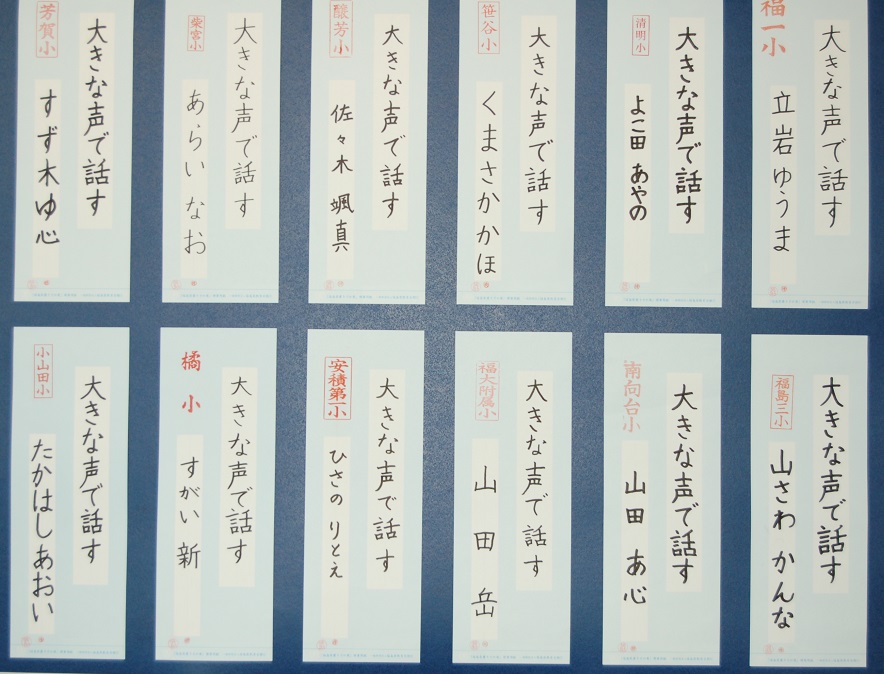 福一小
大きな声で話す
立岩ゆうま
清明小
大きな声で話す
よこ田 あやの
笹谷小
大きな声で話す
くまさかかほ
醸芳小
大きな声で話す
佐々木 颯真
柴宮小
大きな声で話す
あらい なお
芳賀小
大きな声で話す
すず木ゆ心
福島三小
大きな声で話す
山さわ かんな
南向台小
大きな声で話す
山田 あ心
福大附属小
大きな声で話す
山田 岳
安積第一小
大きな声で話す
ひさの りとえ
橘小
大きな声で話す
すがい 新
小山田小
大きな声で話す
たかはしあおい